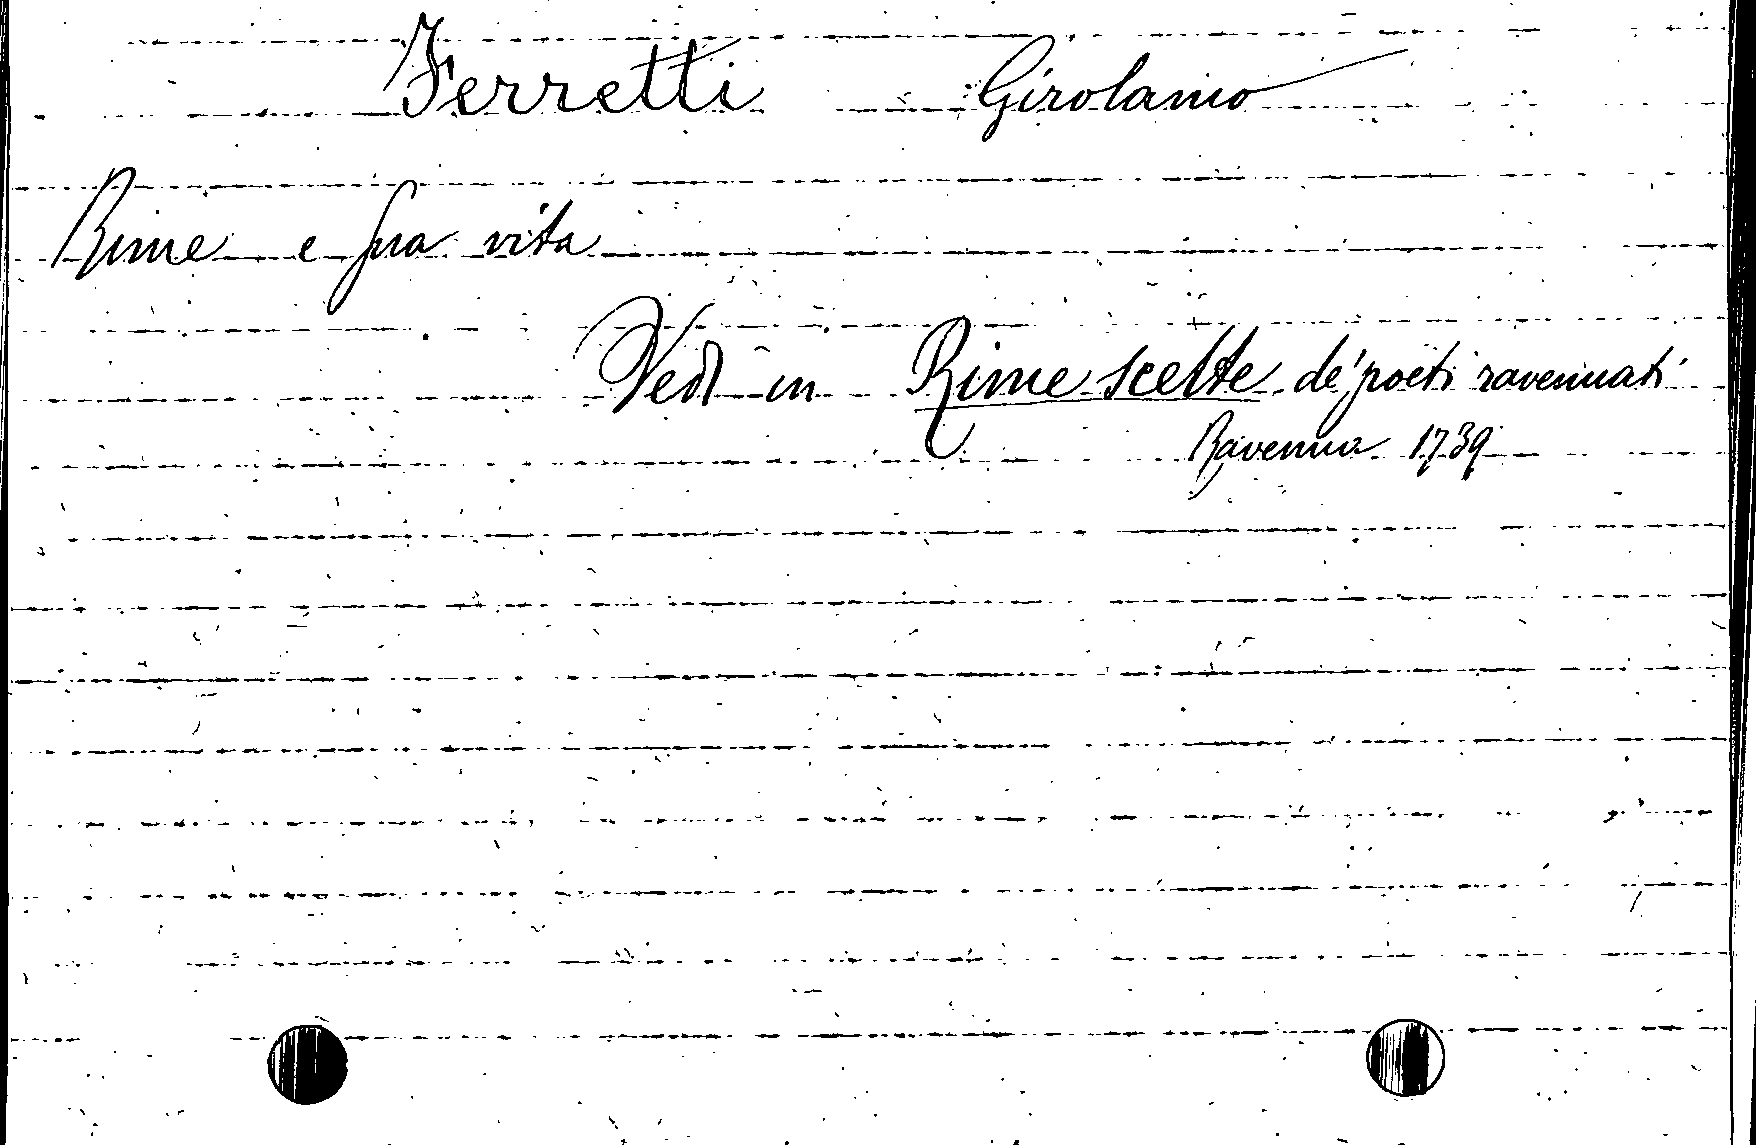 Ferretti Girolamo
Rime e sua vita
Vedi in Rime scelte de' poeti ravennati
Ravenna 1739